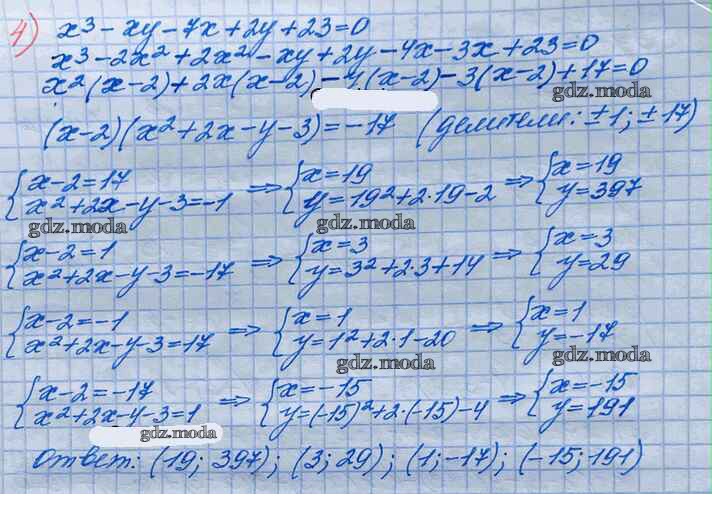 4) x³ - xy - 7x + 2y + 23 = 0
x³ - 2x² + 2x² - xy + 2y - 4x - 3x + 23 = 0
x²(x-2) + 2x(x-2) - y(x-2) - 3(x-2) + 17 = 0
gdz.moda
(x-2)(x² + 2x - y - 3) = -17 (делители: ±1; ±17)
{x-2=17 x²+2x-y-3=-1 => {x=19 y=19²+2·19-2 => {x=19 y=397
gdz.moda gdz.moda
{x-2=1 x²+2x-y-3=-17 => {x=3 y=3²+2·3+14 => {x=3 y=29
{x-2=-1 x²+2x-y-3=17 => {x=1 y=1²+2·1-20 => {x=1 y=-17
gdz.moda gdz.moda
{x-2=-17 x²+2x-y-3=1 => {x=-15 y=(-15)²+2·(-15)-4 => {x=-15 y=191
gdz.moda
Ответ: (19; 397); (3; 29); (1; -17); (-15; 191)